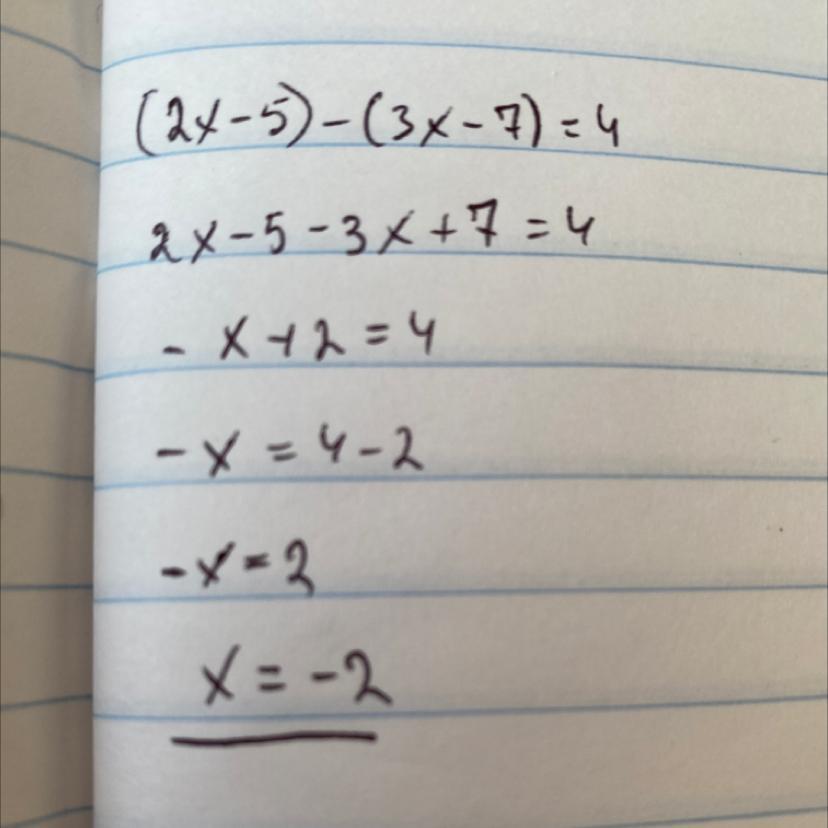 (2x-5)-(3x-7)=4
2x-5-3x+7=4
-x+2=4
-x=4-2
-x=2
x=-2